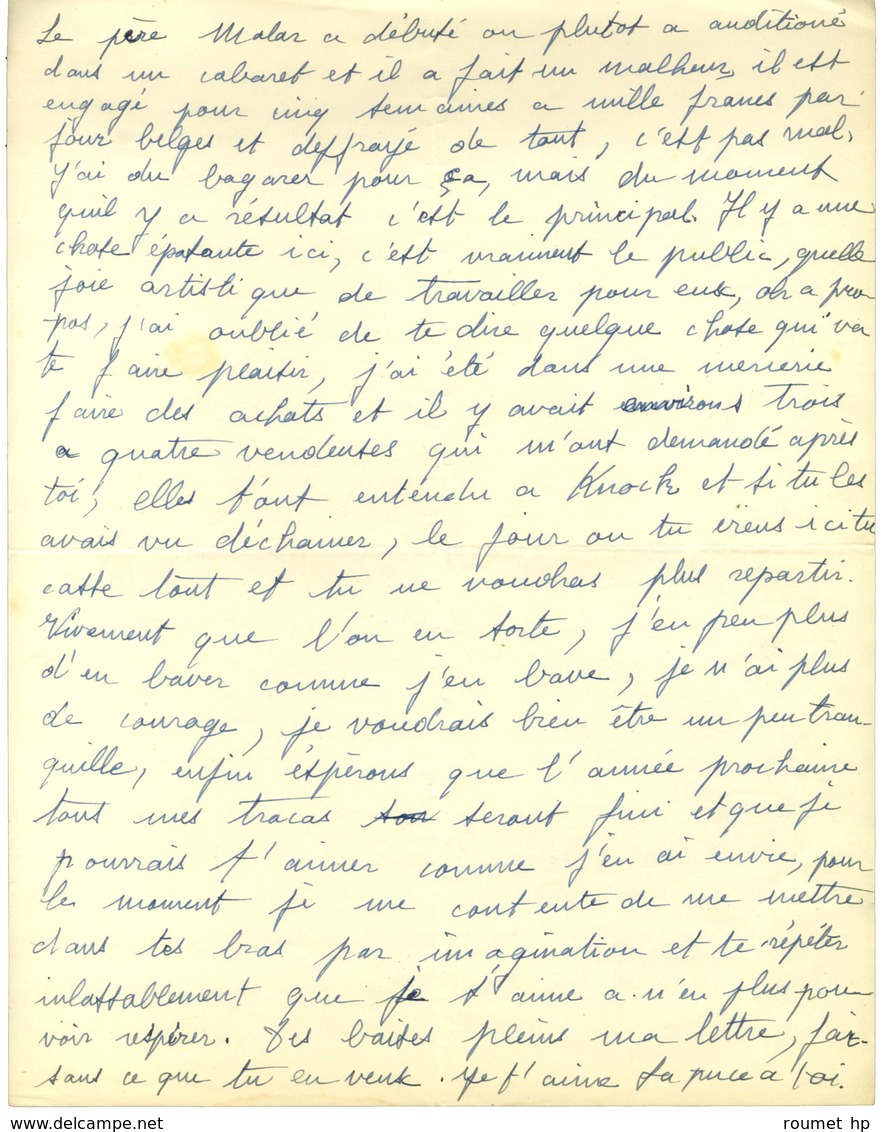 Le père Malar a débuté ou plutot a auditioné
dans un cabaret et il a fait un malheur, il est
engagé pour cinq semaines a mille francs par
jour belges et deffrayé de tout, c'est pas mal,
j'ai du bagarer pour ça, mais du moment
quil y a résultat c'est le principal. Il y a une
chose épatante ici, c'est vraiment le public, quelle
joie artistique de travailler pour eux, oh a pro
pos, j'ai oublié de te dire quelque chose qui va
te faire plaisir, j'ai été dans une mercerie
faire des achats et il y avait environs trois
a quatre vendeuses qui m'ont demandé après
toi, elles t'ont entendu a Knock et si tu les
avais vu déchainer, le jour ou tu viens ici tu
casse tout et tu ne voudras plus repartir.
Vivement que l'on en sorte, j'en peu plus
d'en baver comme j'en bave, je n'ai plus
de courage, je voudrais bien être un peu tran-
quille, enfin éspèrons que l'année prochaine
tous mes tracas son seront fini et que je
pourrais t'aimer comme j'en ai envie, pour
le moment je me contente de me mettre
dans tes bras par imagination et te répéter
inlassablement que je t'aime a n'en plus pou-
voir respirer. Des baises pleins ma lettre, fai-
sans ce que tu en veux. Je t'aime ta puce a toi.
roumet hp